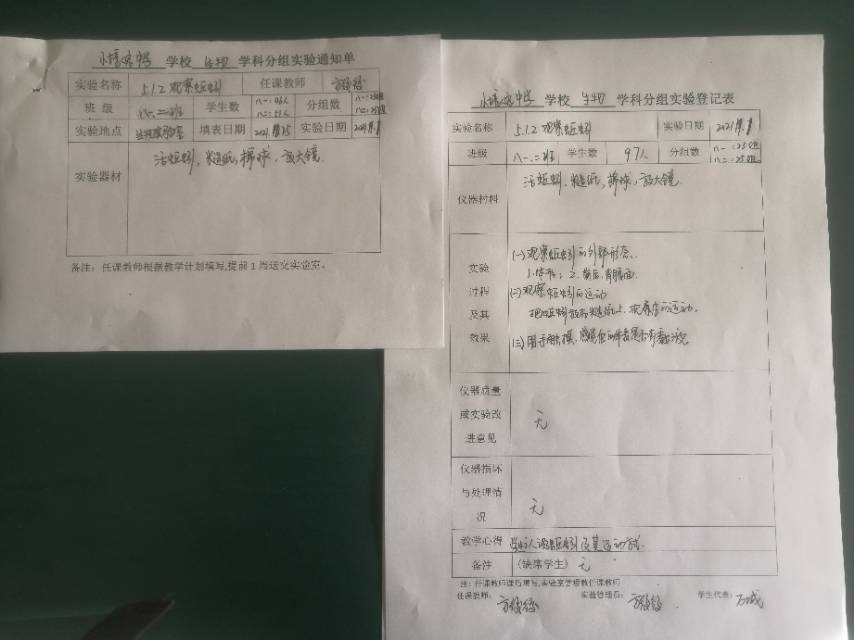 学校 生物 学科分组实验通知单
实验名称 5.1.2 观察蚯蚓 任课教师
班 级 八一.二班 学生数 八一:46人 八二:51人 分组数 八一:23组 八二:25组
实验地点 生物实验室 填表日期 实验日期
实验器材 活蚯蚓, 糙纸, 棉球, 放大镜.
备注：任课教师根据教学计划填写,提前1周送交实验室。
学校 生物 学科分组实验登记表
实验名称 5.1.2 观察蚯蚓 实验日期
班级 八一.二班 学生数 97人 分组数 八一:23组 八二:25组
仪器材料 活蚯蚓, 糙纸, 棉球, 放大镜.
实验过程及其效果
(一)观察蚯蚓的外部形态.
1.体形; 2.前后, 背腹面
(二)观察蚯蚓的运动
把蚯蚓放在糙纸上, 观察它的运动.
(三)用手触摸, 感觉
仪器质量或实验改进意见 无
仪器损坏与处理情况 无
教学心得 蚯蚓及其运动方式.
备注 (缺席学生) 无
注：任课教师课后填写,实验室管理教任课教师
任课教师： 实验管理员： 学生代表：